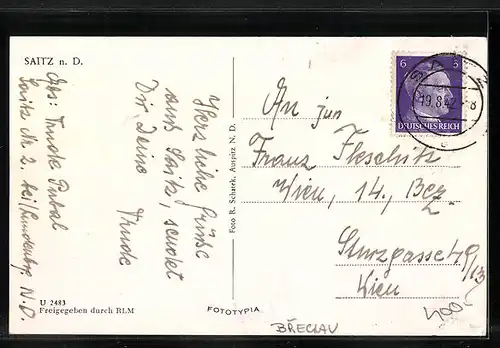 SAITZ n. D.
Abs: Trude
Saitz Nr. 2. bei Lundenbg. N.D.
Herzliche Grüsse
aus Saitz, sendet
Dir Deine
Trude
U 2483
Freigegeben durch RLM
Foto R. Schatek, Auspitz N. D.
FOTOTYPIA
6 6
DEUTSCHES REICH
19.8.42 - 8
An
Franz Fleschitz
Wien, 14., Bez.
Sturzgasse
Wien
BŘECLAV
400.-